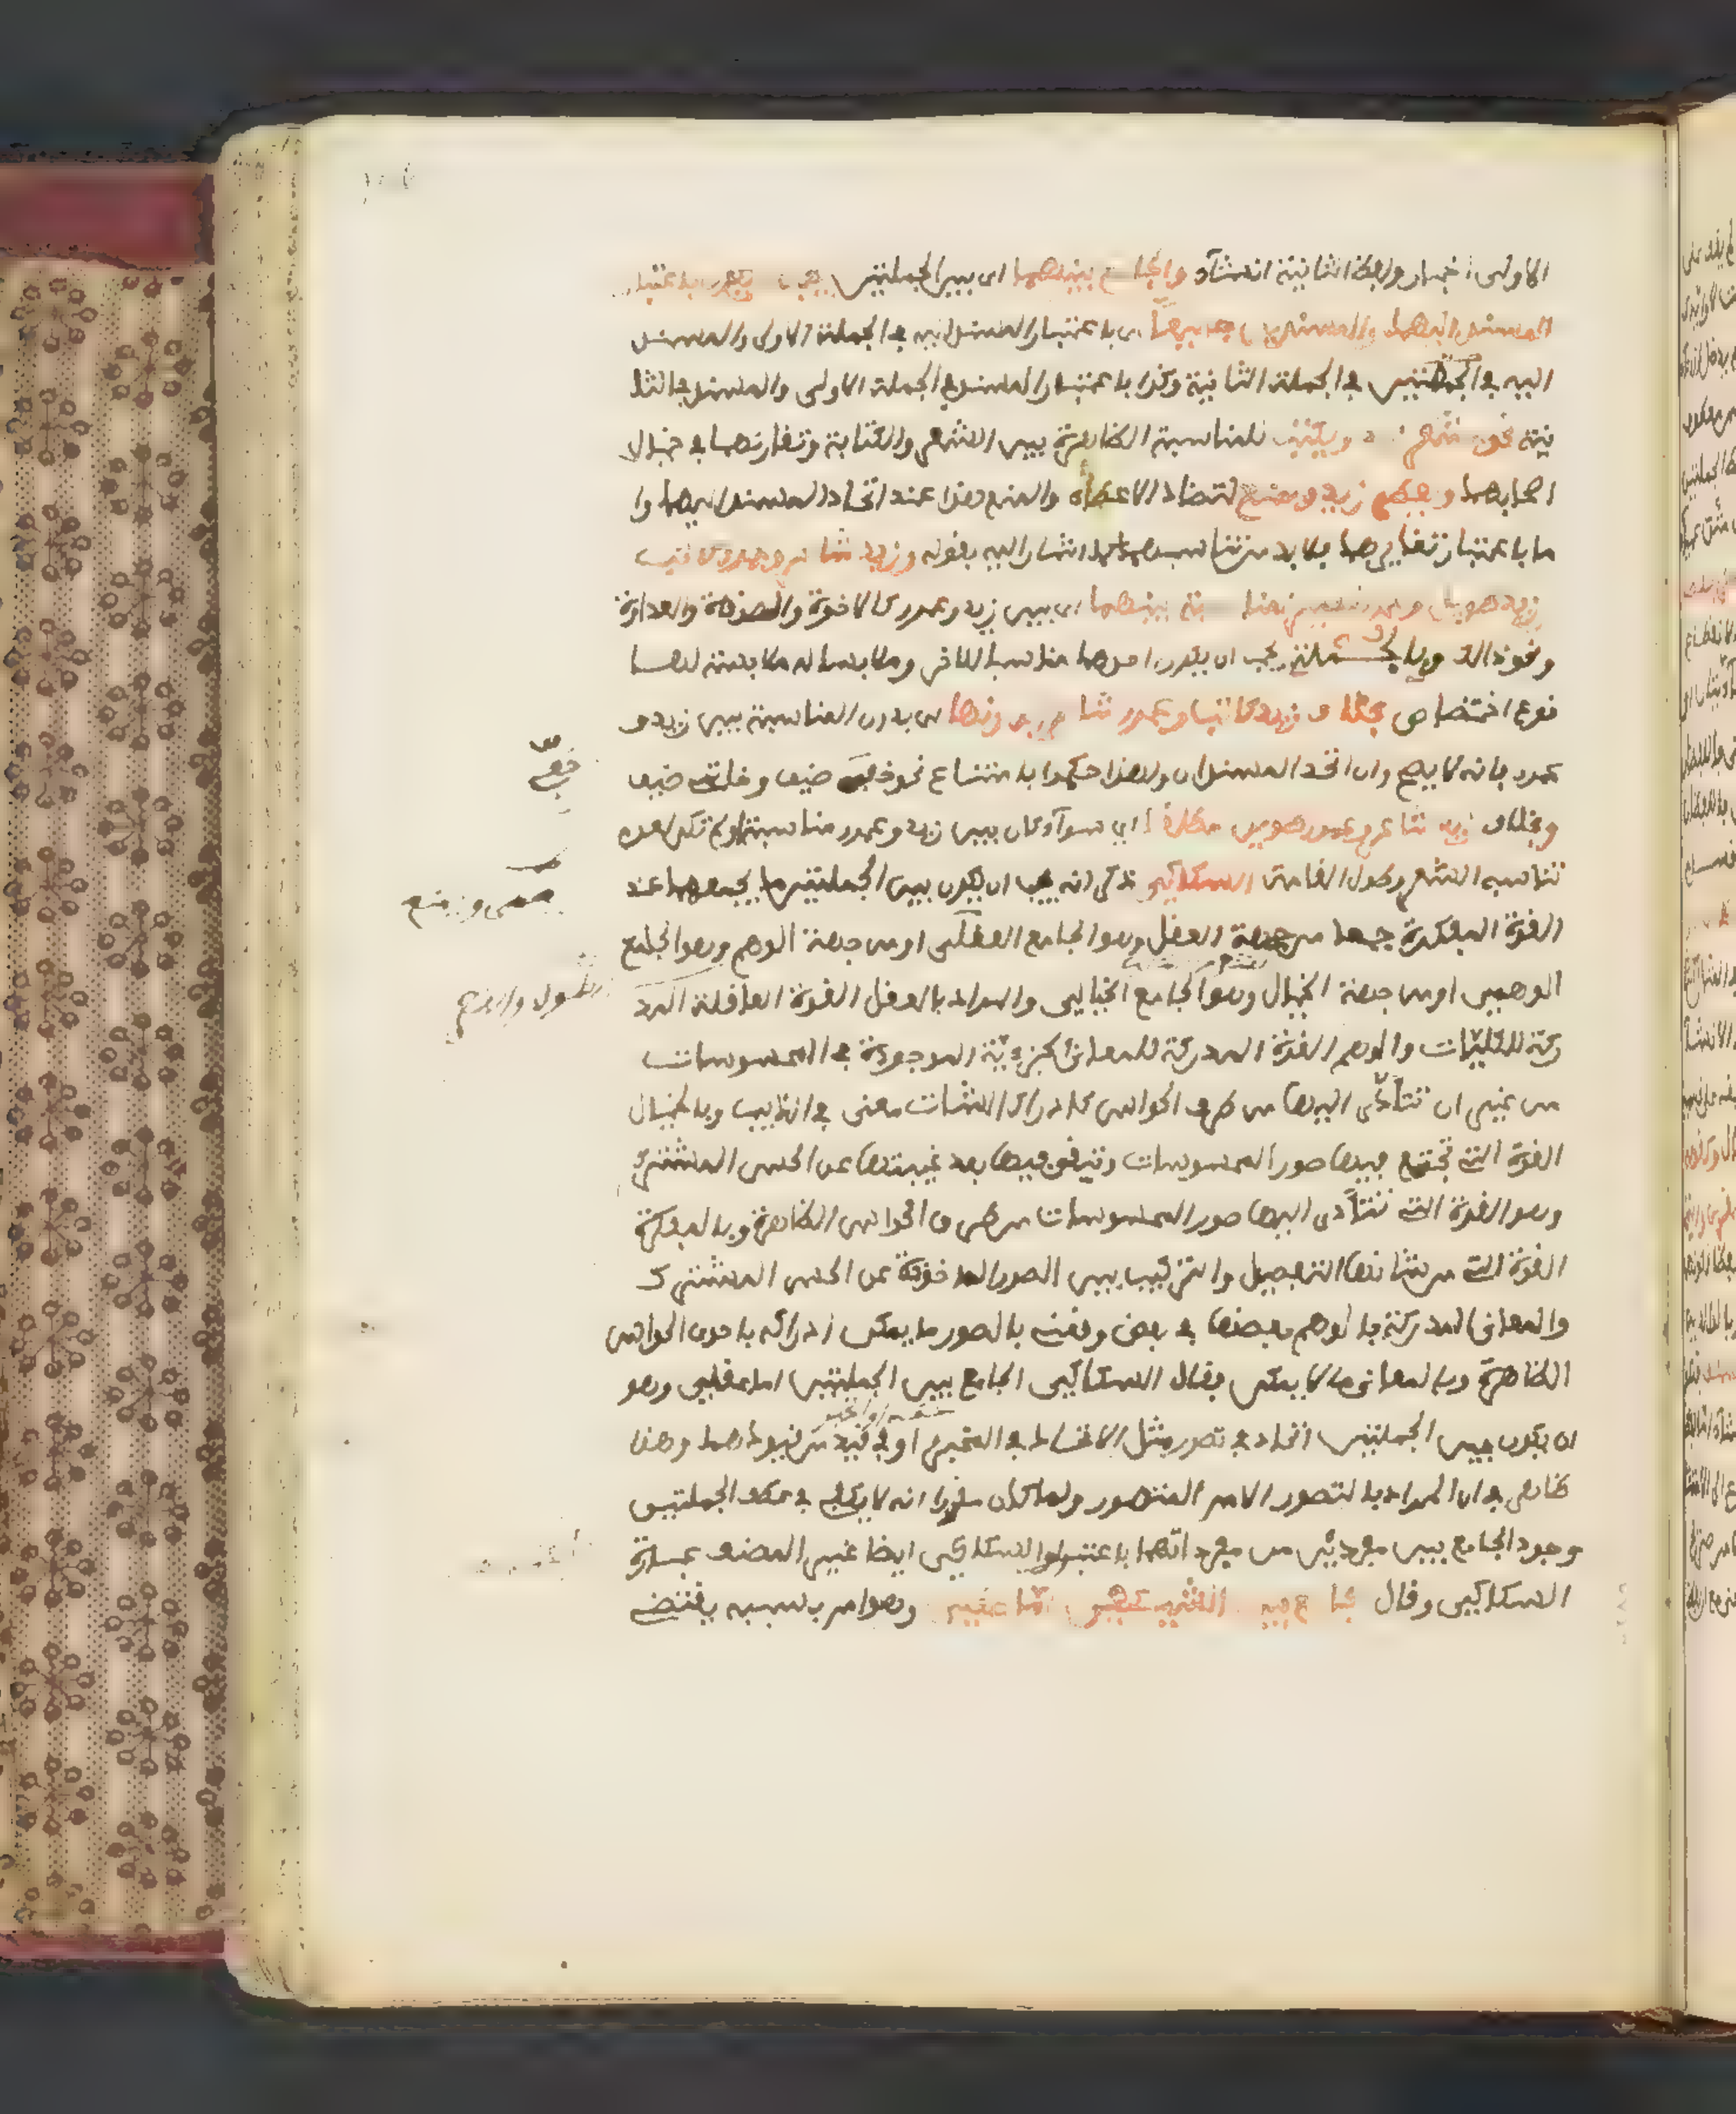 الاولى اخبار ولفظ الثانية انشآء والجامع بينهما اى بين الجملتين يجب ان يكون باعتبار
المسند اليهما والمسندين جميعا اى باعتبار المسند اليه في الجملة الاولى والمسند
اليه في الجملة الثانية وكذا باعتبار المسند في الجملة الاولى والمسند في الثا
نية نحو يشعر زيد ويكتب للمناسبة الظاهرة بين الشعر والكتابة وتقارنهما في خيال
اصحابهما ويعطي زيد ويمنع لتضاد الاعطآء والمنع هذا عند اتحاد المسند اليهما وا
ما باعتبار تغايرهما فلا بد من تناسبهما كما اشار اليه بقوله وزيد شاعر وعمرو كاتب
وزيد طويل وعمرو قصير لمناسبة بينهما اى بين زيد وعمرو كالاخوة والصداقة والعداوة
ونحو ذالك وبالجملة يجب ان يكون احدهما مناسبا للاخر وملابسا له ملابسة لها
نوع اختصاص بخلاف زيد كاتب وعمرو شاعر بدونها اى بدون المناسبة بين زيد و
عمرو فانه لا يصح وان اتحد المسندان ولهذا حكموا بامتناع نحو خفي ضيق وخاتمي ضيق
وبخلاف زيد شاعر وعمرو طويل مطلقا اى سوآء كان بين زيد وعمرو مناسبة او لم تكن لعدم
تناسب الشعر وطول القامة السكاكي ذكر انه يجب ان يكون بين الجملتين ما يجمعهما عند
القوة المفكرة جمعا من جهة العقل وهو الجامع العقلى او من جهة الوهم وهو الجامع
الوهمى او من جهة الخيال وهو الجامع الخيالى والمراد بالعقل القوة العاقلة المد
ركة للكليات والوهم القوة المدركة للمعانى الجزءية الموجودة في المحسوسات
من غير ان تتأدى اليها من طرف الحواس كادراك الشات معنى في الذيب وبالخيال
القوة التى تجتمع فيها صور المحسوسات وتبقى فيها بعد غيبتها عن الحس المشترك
وهو القوة التى تتأدى اليها صور المحسوسات من طرف الحواس الظاهرة وبالمفكرة
القوة التى من شانها التفصيل والتركيب بين الصور الماخوذة عن الحس المشترك
والمعانى المدركة بالوهم بعضها في بعض ونعنى بالصور ما يمكن ادراكه باحدى الحواس
الظاهرة وبالمعانى ما لا يمكن فقال السكاكى الجامع بين الجملتين اما عقلى وهو
ان يكون بين الجملتين اتحاد في تصور مثل الاتحاد في المخبر او في قيد من قيودهما وهذا
ظاهر في ان المراد بالتصور الامر المتصور ولما كان مقررا انه لا يكفى في عطف الجملتين
وجود الجامع بين مفردين من مفرداتهما باعتراف السكاكى ايضا غير المصنف عبارة
السكاكى وقال الجامع بين الشيئين اما عقلى وهو امر بسببه يقتضى